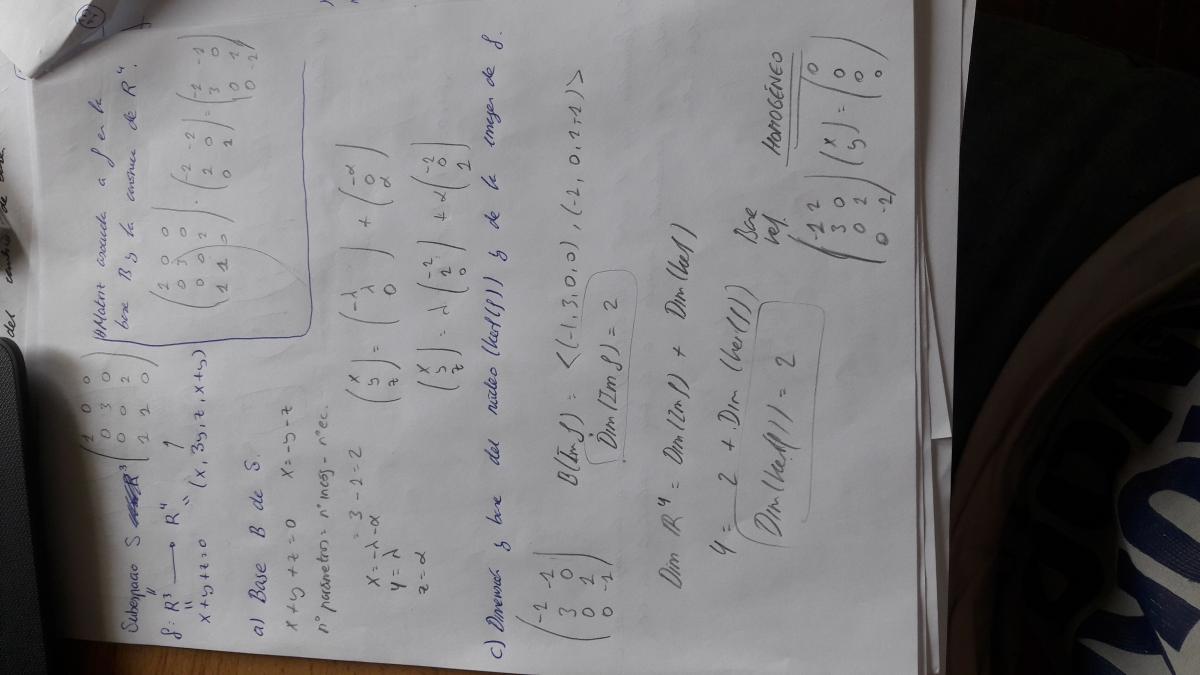 del cambio de base.
Subespacio S
f: R³ → R⁴
x+y+z=0
(x, 3y, z, x+y)
(1 0 0
0 3 0
0 0 1
1 1 0)
Matriz asociada a f en la
base B y la canónica de R⁴.
(1 0 0
0 3 0
0 0 1
1 1 0) · (-1 -1
1 0
0 1) = (-1 -1
3 0
0 1
0 -1)
a) Base B de S.
x+y+z=0 x=-y-z
nº parámetros = nº incog - nº ec.
= 3-1=2
x=-λ-α
y=λ
z=α
(x
y
z) = (-λ
λ
0) + (-α
0
α)
(x
y
z) = λ(-1
1
0) + α(-1
0
1)
c) Dimensión y base del núcleo (ker(f)) y de la imagen de f.
(-1 -1
3 0
0 1
0 -1)
B(Im f) = <(-1,3,0,0), (-1,0,1,-1)>
Dim(Im f) = 2
Dim R⁴ = Dim(Im f) + Dim(ker f)
4 = 2 + Dim(ker(f))
Dim(ker(f)) = 2
Base
ker.
HOMOGÉNEO
(-1 1
3 0
0 1
0 -1) (x
y) = (0
0
0
0)